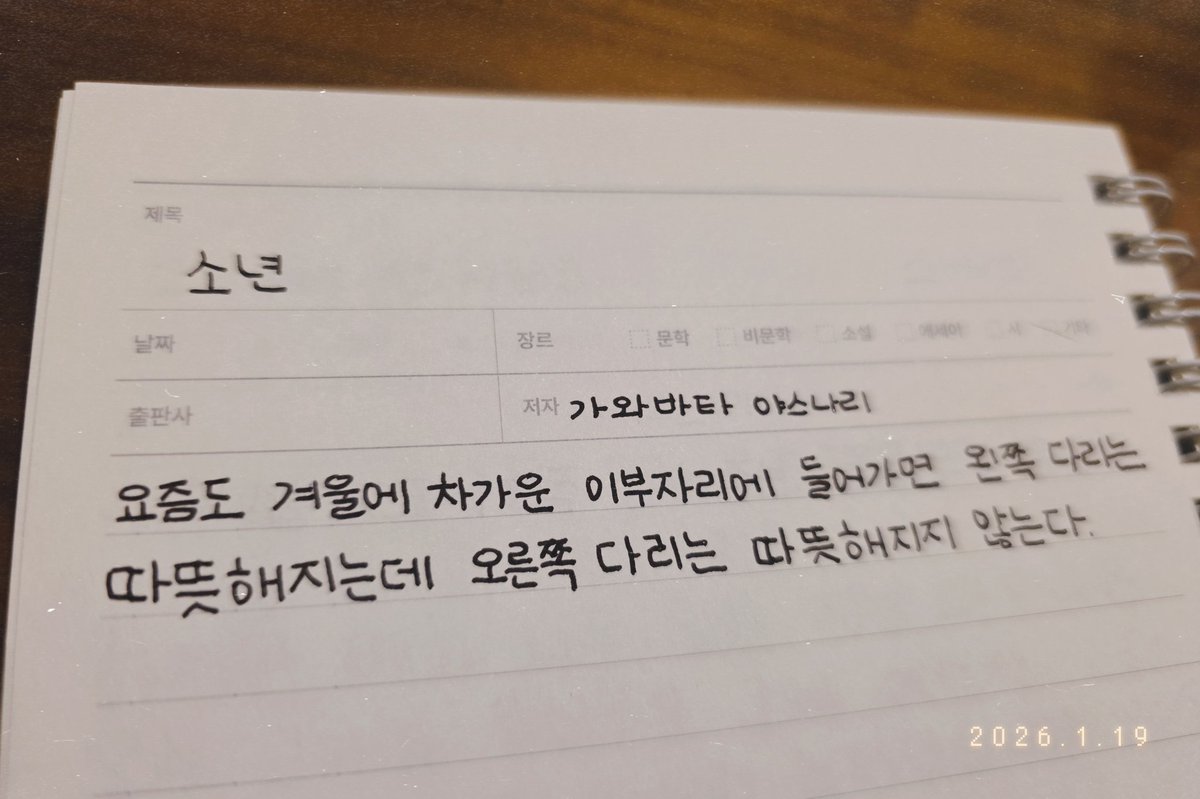 제목
소년
날짜
장르 문학 비문학 소설 에세이 시 기타
출판사
저자 가와바타 야스나리
요즘도 겨울에 차가운 이부자리에 들어가면 왼쪽 다리는
따뜻해지는데 오른쪽 다리는 따뜻해지지 않는다.
2026.1.19